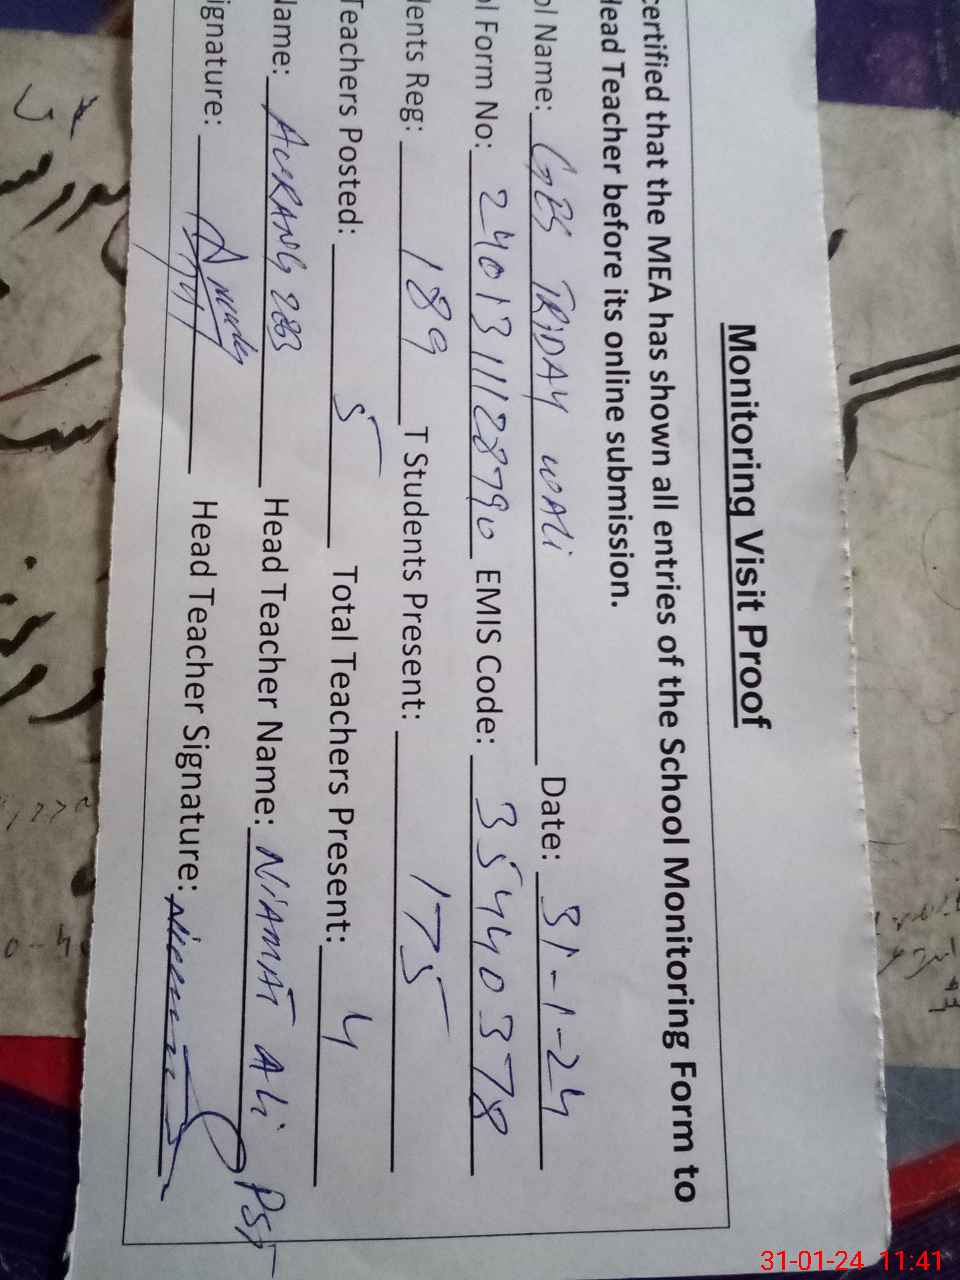 Monitoring Visit Proof
certified that the MEA has shown all entries of the School Monitoring Form to
Head Teacher before its online submission.
ol Name: GBS TRIDAY WALI Date: 31-1-24
ol Form No: 2401311128790 EMIS Code: 35440378
dents Reg: 189 T Students Present: 175
Teachers Posted: 5 Total Teachers Present: 4
Name: AURANG Head Teacher Name: NIAMAT Ali PST
ignature: Head Teacher Signature:
31-01-24 11:41